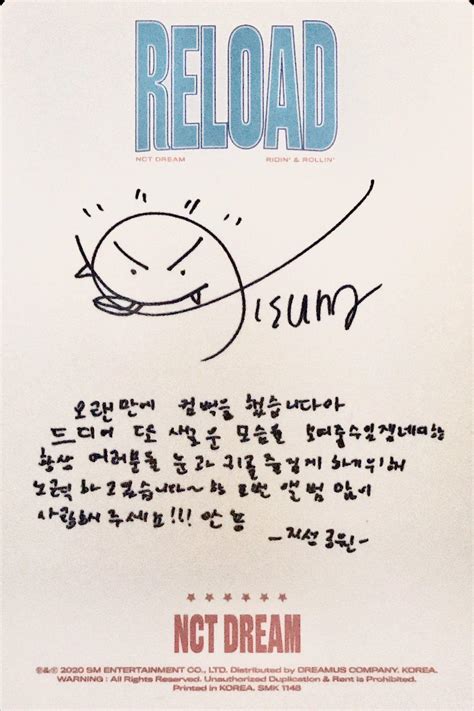 RELOAD
NCT DREAM RIDIN' & ROLLIN'
Jisung
오랜만에 컴백을 했습니다아
드디어 또 새로운 모습을
항상 여러분들 눈과 귀를 즐겁게 하기위해
노력 하고있습니다~ 항 이번 앨범 많이
사랑해 주세요!!! 안뇽
-지성
NCT DREAM
℗&© 2020 SM ENTERTAINMENT CO., LTD. Distributed by DREAMUS COMPANY. KOREA.
WARNING : All Rights Reserved. Unauthorized Duplication & Rent is Prohibited.
Printed in KOREA. SMK 1148